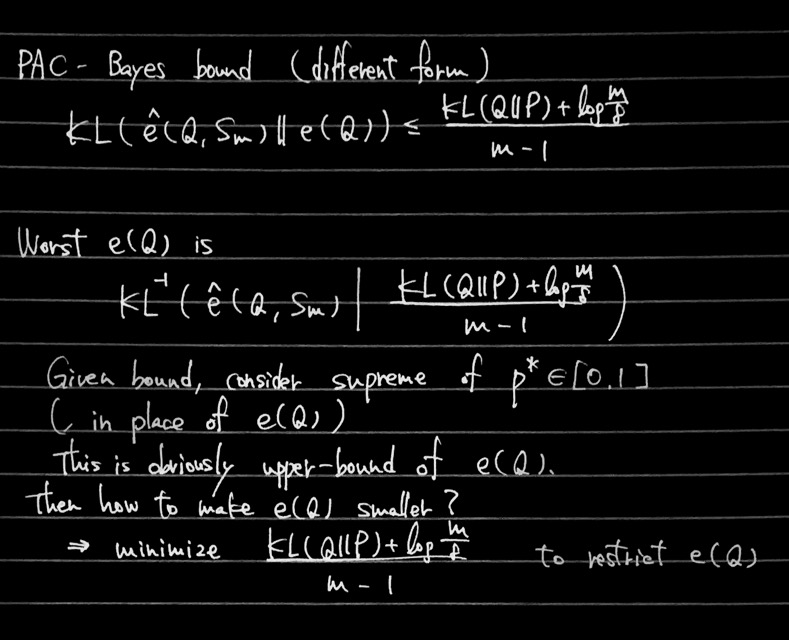 PAC-Bayes bound (different form)
KL(ê(Q, Sm) || e(Q)) ≤ (KL(Q||P) + log m/δ) / (m-1)
Worst e(Q) is
KL⁻¹(ê(Q, Sm) | (KL(Q||P) + log m/δ) / (m-1))
Given bound, consider supreme of p* ∈ [0,1]
(in place of e(Q))
This is obviously upper-bound of e(Q).
Then how to make e(Q) smaller?
⇒ minimize (KL(Q||P) + log m/δ) / (m-1) to restrict e(Q)